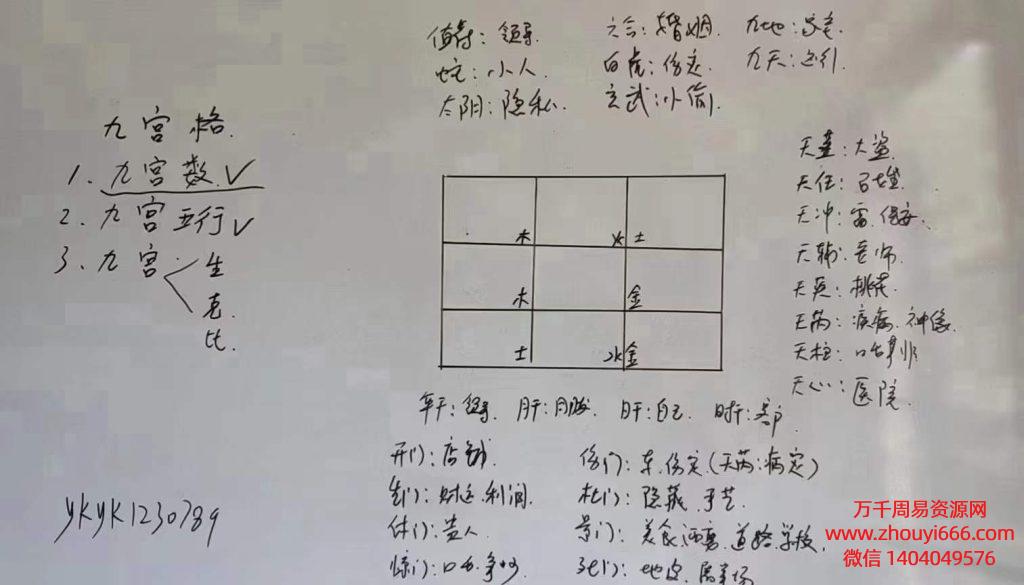 值符：领导. 六合：婚姻. 九地：
蛇：小人. 白虎：伤 九天：
太阴：隐私. 玄武：小偷.
九宫格.
1、九宫数.√
2、九宫五行√
3、九宫 生
克
比.
天蓬：大盗.
天任：
天冲：雷.
天辅：老师.
天英：桃花.
天芮：疾病.神像.
天柱：口
天心：医院.
木 火 土
木 金
土 水 金
年干：领导. 月干： 日干：自己. 时干：客户.
开门：店铺. 伤门：车.伤 (天芮:病 )
生门：财运.利润. 杜门：隐藏.手艺.
休门：贵人. 景门：美食 道路.学校.
惊门：口 死门：地皮.
ykyk1230789
万千周易资源网
www.zhouyi666.com
微信 1404049576